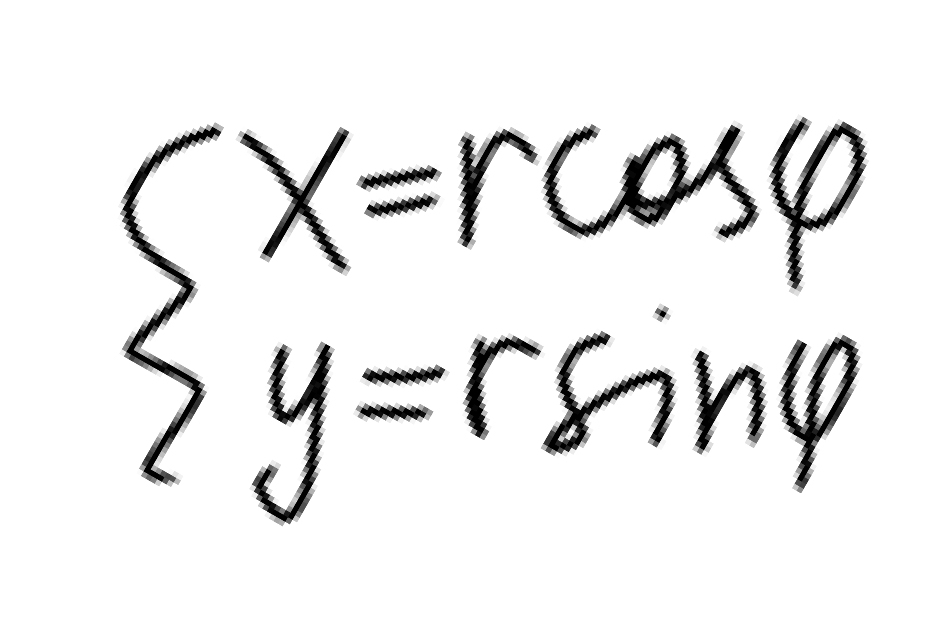 { x = r cos φ
y = r sin φ